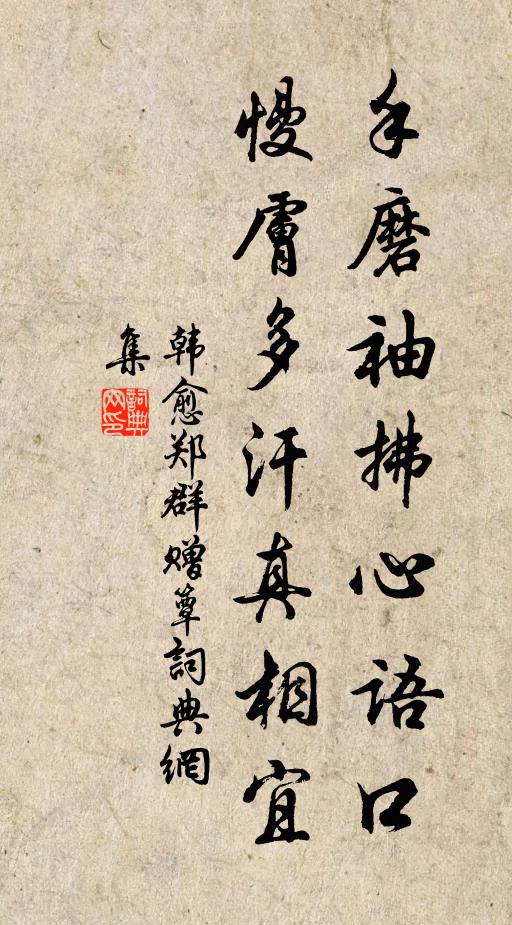 手磨袖拂心语口
慢膚多汗真相宜
韩愈郑群赠簟詞典網
集
詞典
网印